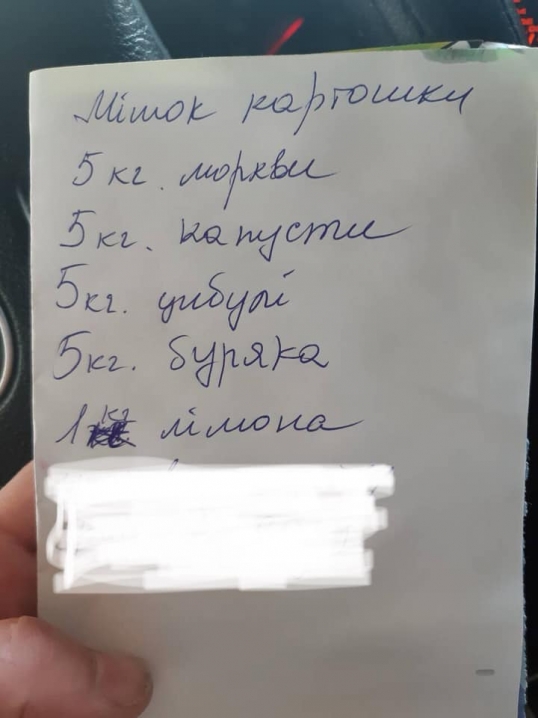 Мішок картошки
5 кг. моркви
5 кг. капусти
5 кг. цибулі
5 кг. буряка
1 кг лімона